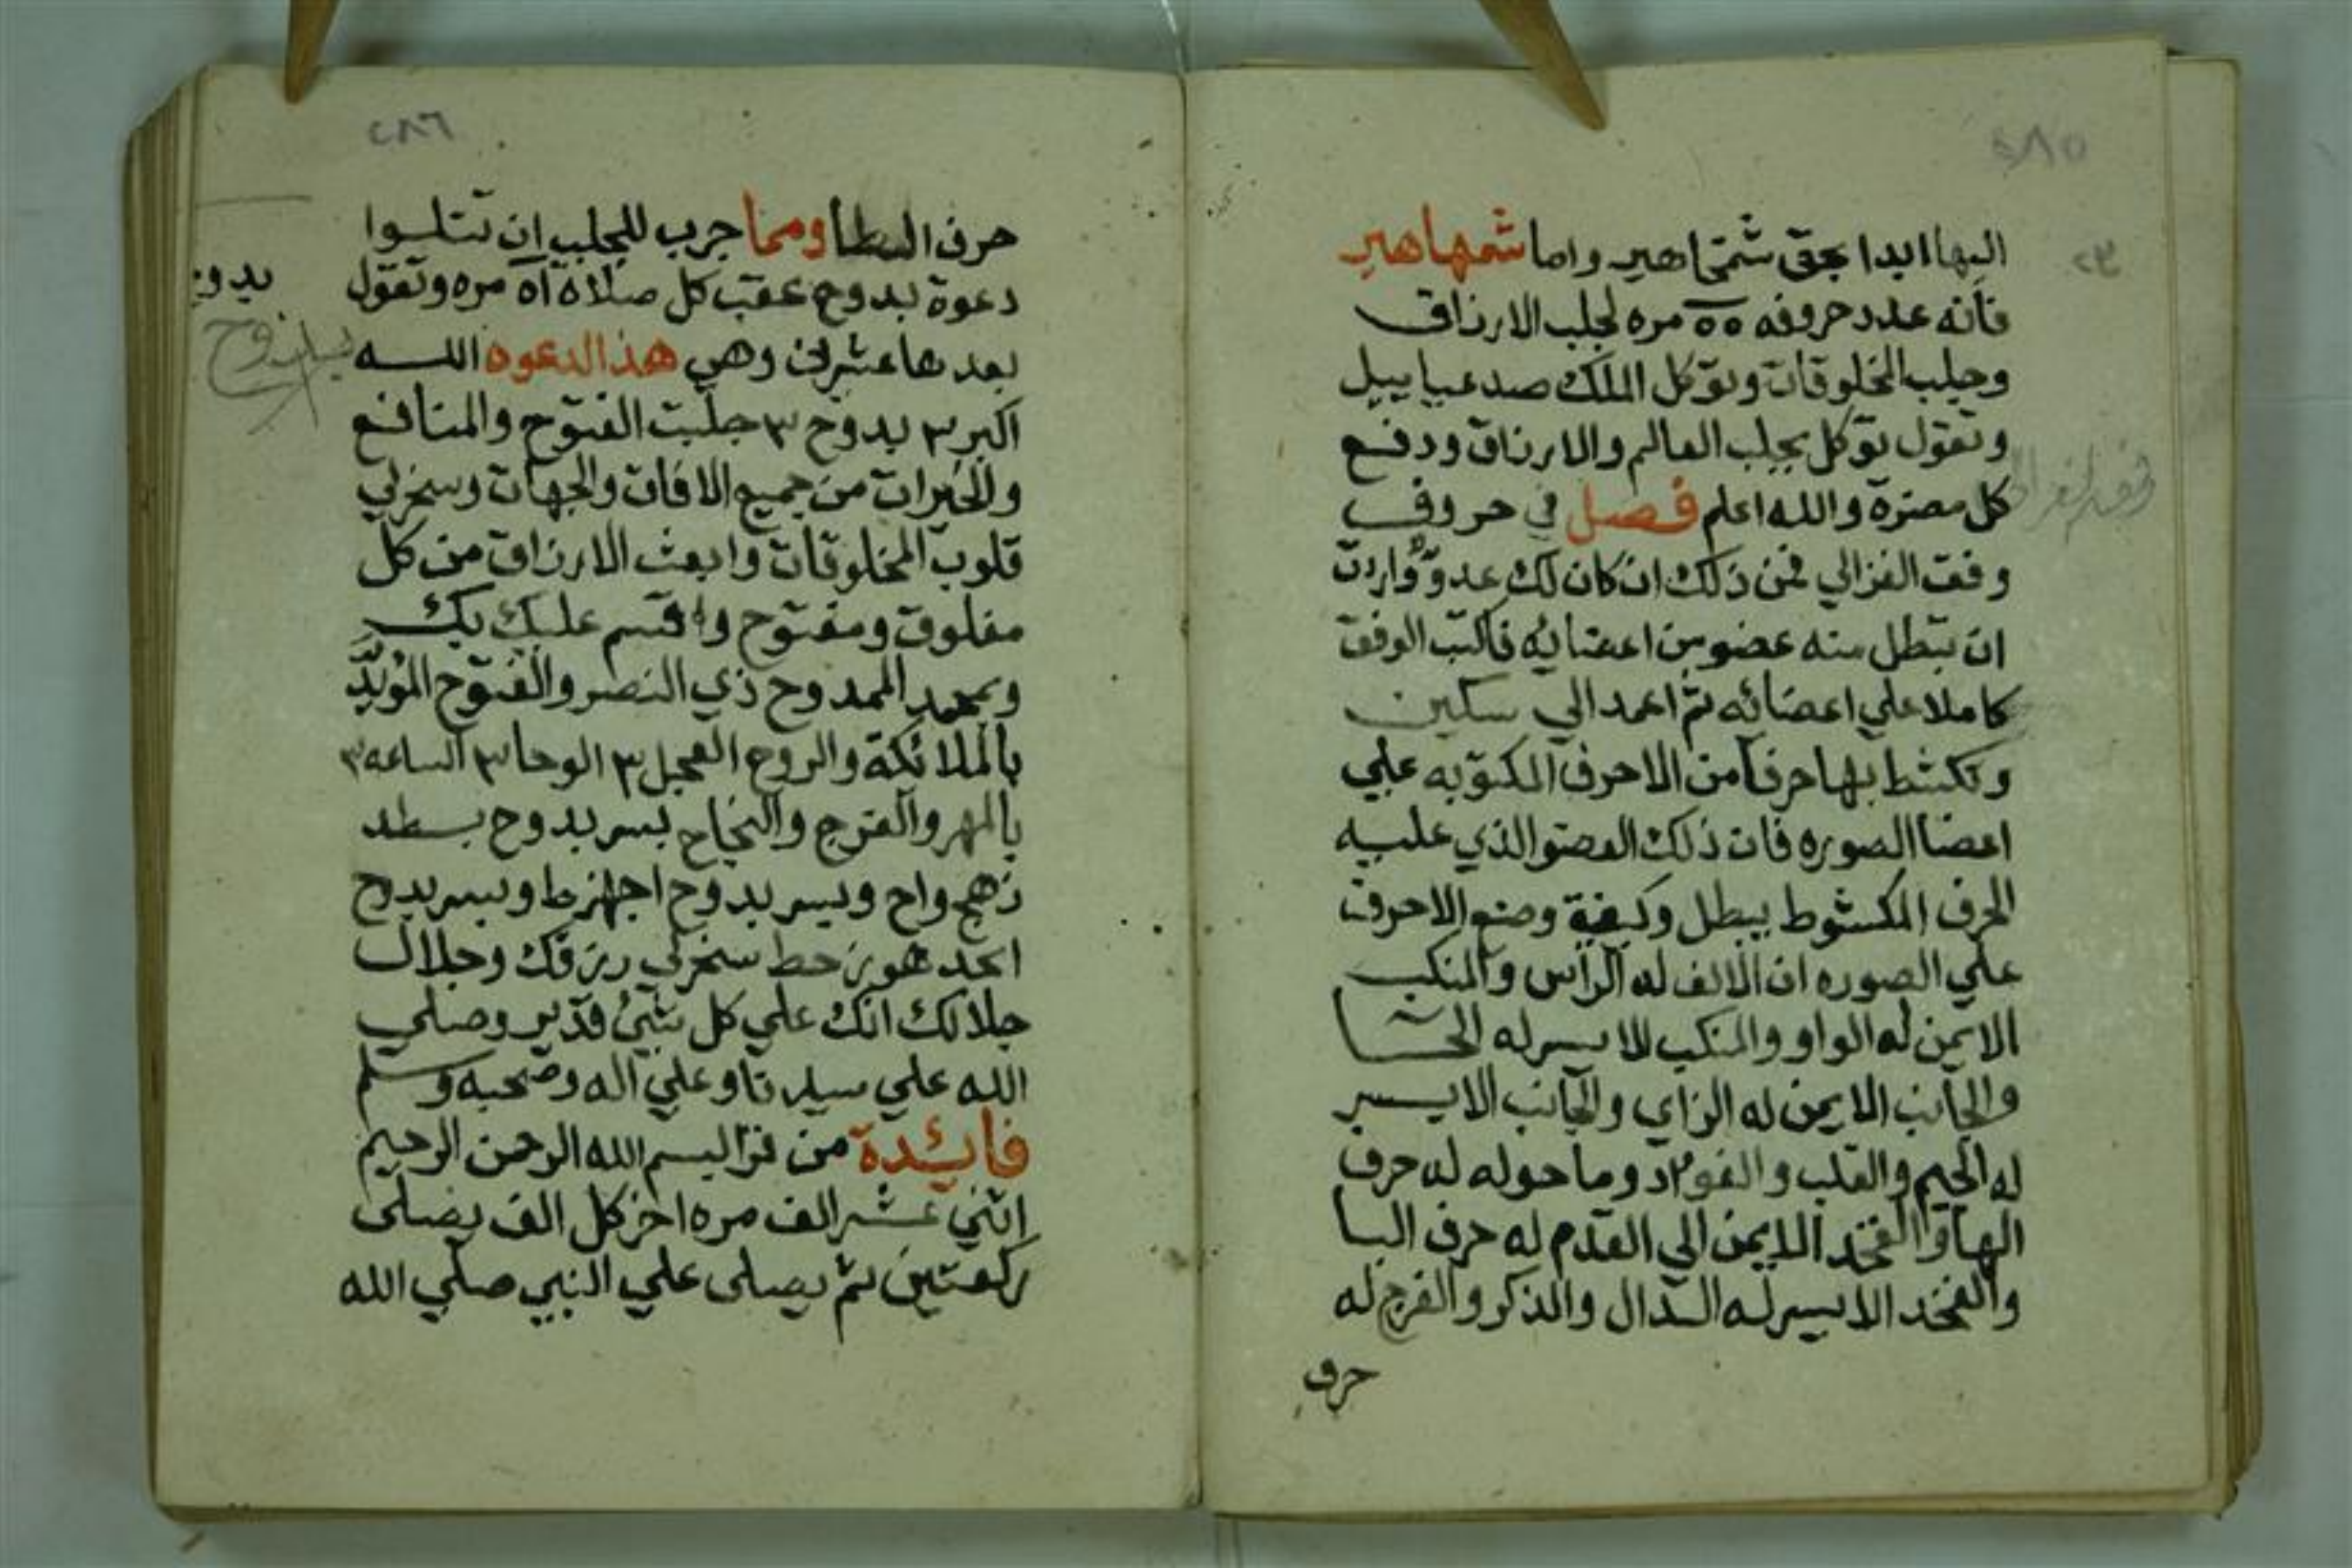 ٢٨٥
اليها ابدا بحق شمتماهير واما شمهاهير
فانه عدد حروفه ٥٥ مره لجلب الارزاق
وجلب المخلوقات وتوكل الملك صدعياييل
وتقول توكل بجلب العالم والارزاق ودفع
كل مضرة والله اعلم فصل في حروف
وفق الغزالي فمن ذلك ان كان لك عدو واردت
ان تبطل منه عضو من اعضائه فاكتب الوفق
كاملا علي اعضائه ثم اعمد الي سكين
وتكشط بها حرفا من الاحرف المكتوبه علي
اعضا الصوره فان ذلك العضو الذي عليه
الحرف المكشوط يبطل وكيفية وضع الاحرف
علي الصوره ان الالف له الراس والمنكب
الايمن له الواو والمنكب الايسر له الحا
والجانب الايمن له الزاي والجانب الايسر
له الجيم والقلب والفواد وما حوله له حرف
الها والفخد الايمن الي القدم له حرف البا
والفخد الايسر له الدال والذكر والفرج له
حرف
٢٨٦
حرف الطا ومما جرب للجلب ان تتلوا
دعوة بدوح عقب كل صلاة ٥١ مره وتقول
بعدها عشرين وهي هذا الدعوه الله
اكبر ٣ بدوح ٣ جلبت الفتوح والمنافع
والخيرات من جميع الافات والجهات وسخرلي
قلوب المخلوقات وابعث الارزاق من كل
مغلوق ومفتوح واقسم عليك بك
وبمحمد الممدوح ذي النصر والفتوح المؤيد
بالملائكة والروح العجل ٣ الوحا ٣ الساعه ٣
بالمهر والفرج والنجاح بسر بدوح بسطد
زهج واح وبسر بدوح اجهزط وبسر بدوح
ابجد هوز حط سخرلي رزقك وجلال
جلالك انك علي كل شئ قدير وصلي
الله علي سيدنا وعلي اله وصحبه وسلم
فايئدة من قرا بسم الله الرحمن الرحيم
اثني عشر الف مره اخر كل الف يصلي
ركعتين ثم يصلي علي النبي صلي الله
بدوح